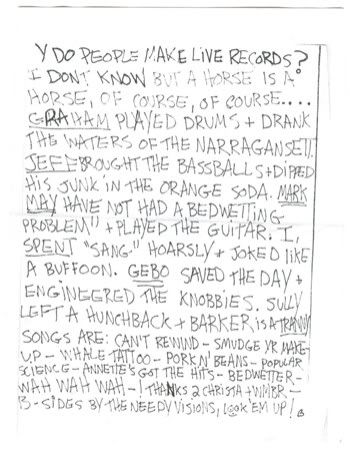 Y DO PEOPLE MAKE LIVE RECORDS?
I DONT KNOW BUT A HORSE IS A
HORSE, OF COURSE, OF COURSE....
GRAHAM PLAYED DRUMS + DRANK
THE WATERS OF THE NARRAGANSETT.
JEFF BROUGHT THE BASSBALLS + DIPPED
HIS JUNK IN THE ORANGE SODA. MARK
MAY HAVE NOT HAD A BEDWETTING
PROBLEM" + PLAYED THE GUITAR. I,
SPENT "SANG" HOARSLY + JOKED LIKE
A BUFFOON. GEBO SAVED THE DAY +
ENGINEERED THE KNOBBIES. SULLY
LEFT A HUNCHBACK + BARKER IS A TRANNY
SONGS ARE: CAN'T REWIND - SMUDGE YR MAKE-
UP - WHALE TATTOO - PORK N' BEANS - POPULAR
SCIENCE - ANNETTE'S GOT THE HITS - BEDWETTER -
WAH WAH WAH - THANKS 2 CHRISTA +
B-SIDES BY THE NEEDY VISIONS, LOOK 'EM UP!